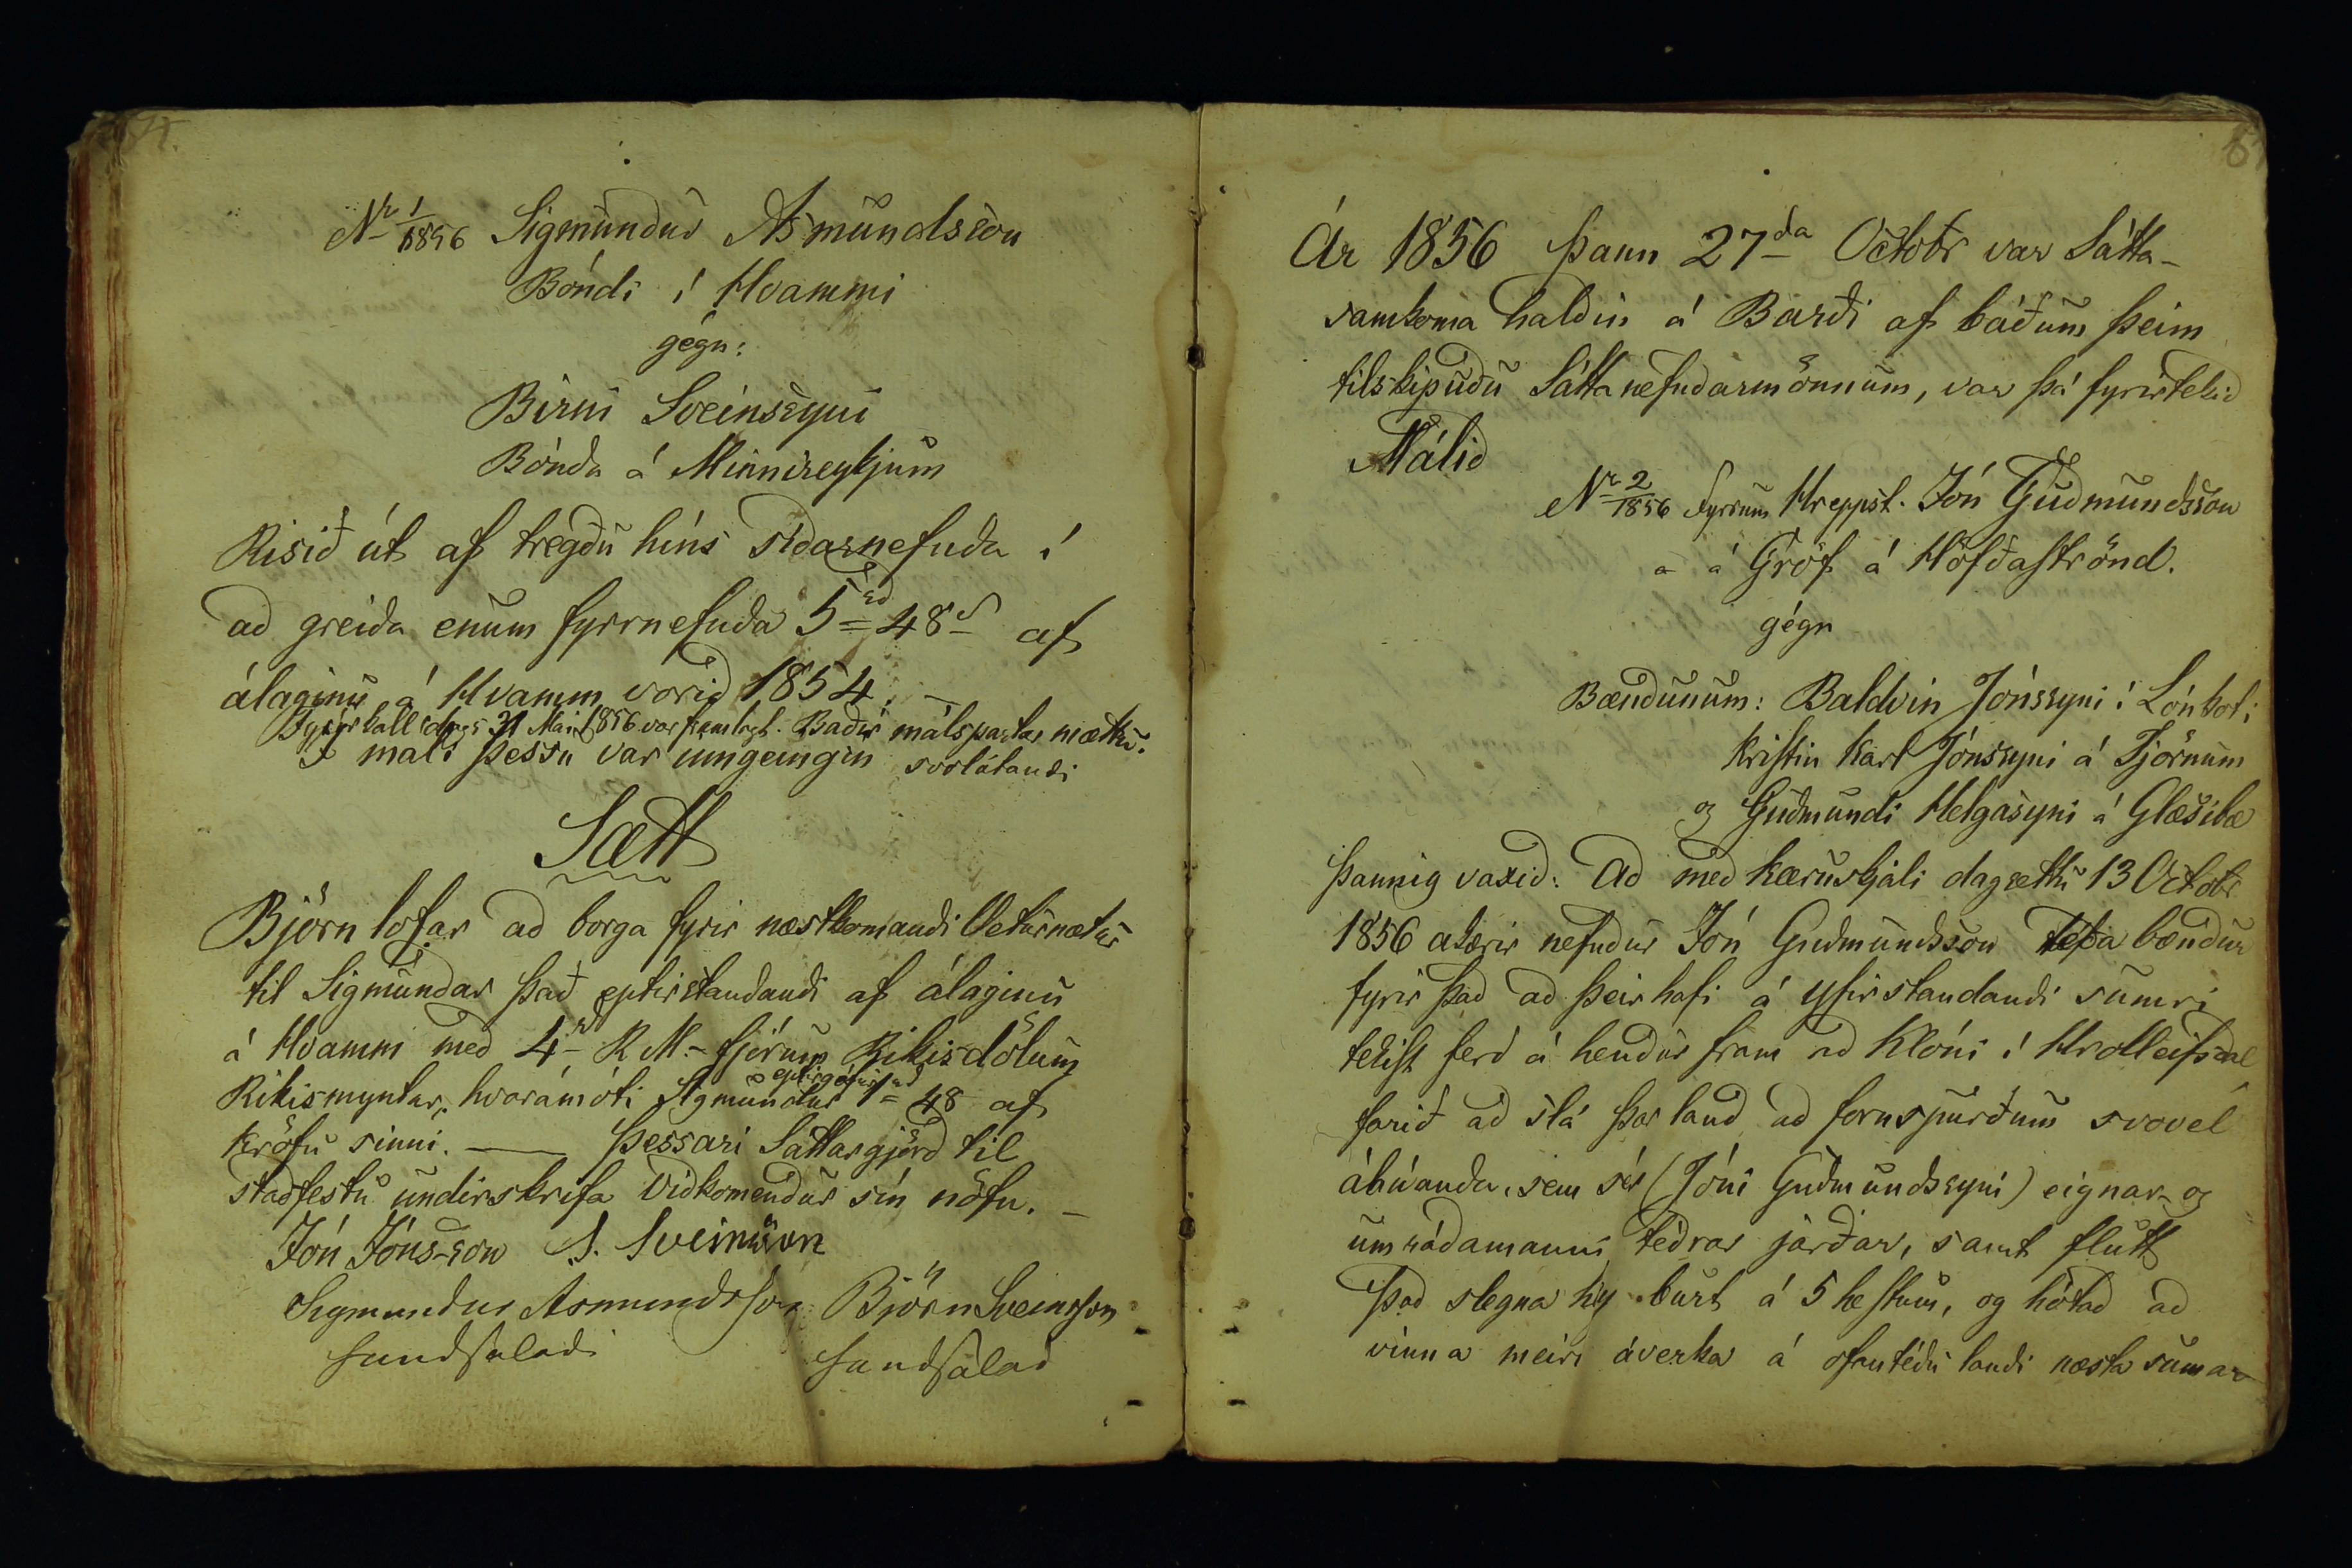 Nr 1/1856 Sigmundur Asmundsson
Bóndi í Hvammi
gégn:
Birni Sveinssyni
Bónda á Minnireykjum
Risið út af tregðu hins síðarnefnda í
að greiða enum fyrrnefnda 5rd 48s af
álaginu á Hvamm vorið 1854. –
Fyrirkall dags 31 Mai 1856 var framlagt. Baðir málspartar mættu.
I máli þessu var inngeingin svolátandi
Sætt
Björn lofar að borga fyrir næstkomandi Veturnætur
til Sigmundar það eptirstandandi af álaginu
á Hvammi með 4rd R M. – fjórum Ríkisdölum
Ríkismyntar, hvarámóti Sigmundur eptirgefur 1rd 48 af
kröfu sinni. — Þessari Sáttargjörð til
staðfestu undirskrifa viðkomendur sín nöfn. –
Jón Jóns-son S. Sveinsson
Sigmundur Asmundsson Björn Sveinsson
handsalaði handsalað
Ár 1856 Þann 27da Octobr var Sátta-
samkoma haldin á Barði af báðum þeim
tilskipuðu Sáttanefndarmönnum, var þá fyrirtekið
Málið
Nr 2/1856 Fyrrum Hreppst. Jón Guðmundsson
á Gröf á Höfðaströnd.
gégn
Bændunum: Baldvin Jónssyni í Lónkoti
Kristin Karl Jónssyni á Tjörnum
og Guðmundi Helgasyni á Glæsibæ
þannig vaxið: Að með kæruskjali dagsettu 13 Octobr
1856 akærir nefndur Jón Guðmundsson téða bændur
fyrir það að þeir hafi á yfirstandandi sumri
tekist ferð á hendur fram að Klóni í Hrolleifsdal
farið að slá þar land að fornspurðum svovel
ábúanda, sem sér (Jóni Guðmundssyni) eignar- og
umráðamanni téðrar jarðar, samt flutt
það slegna hey burt á 5 hestum, og hótað að
vinna meiri áverka á ofantéðu landi næsta sumar